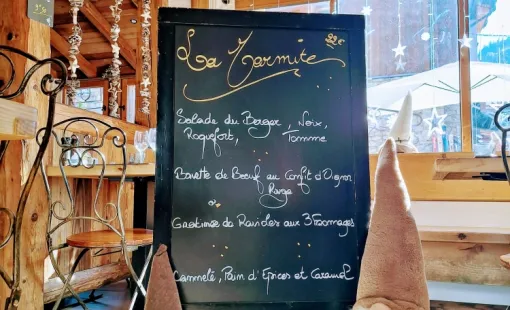 La Marmite
29€
Salade du Berger, Noix,
Roquefort, Tomme
Bavette de Boeuf au Confit d'Oignon
Rouge
ou
Gratinée de Ravioles aux 3 Fromages
Cannelé, Pain d'Epices et Caramel